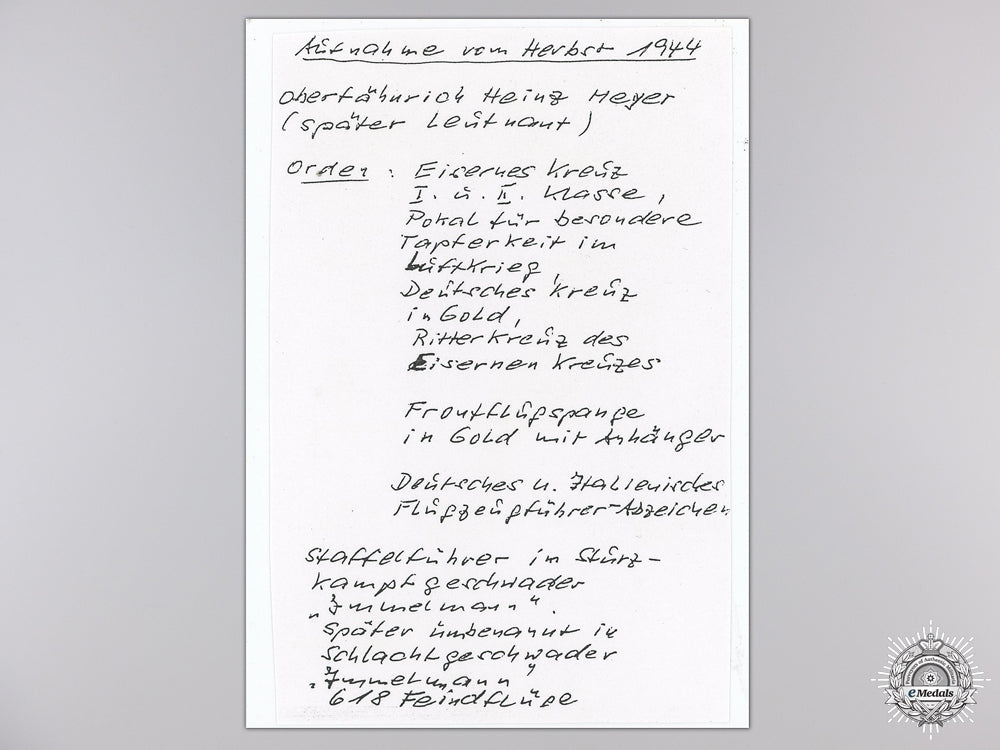 Aufnahme vom Herbst 1944
Oberfähnrich Heinz Meyer
(später Leutnant)
Orden: Eisernes Kreuz
I. u. II. Klasse,
Pokal für besondere
Tapferkeit im
Luftkrieg,
Deutsches Kreuz
in Gold,
Ritterkreuz des
Eisernen Kreuzes
Frontflugspange
in Gold mit Anhänger
Deutsches u. Italienisches
Flugzeugführer-Abzeichen
Staffelführer im Sturz-
kampfgeschwader
„Immelmann“.
später umbenannt in
Schlachtgeschwader
„Immelmann“
618 Feindflüge
eMedals